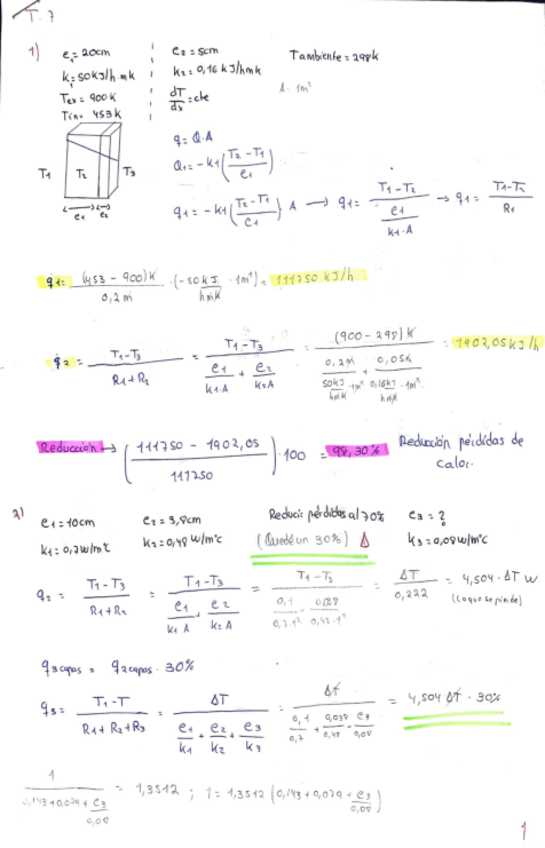 T.7
1) e₁ = 20cm
k₁ = 50 KJ/h·mk
Tex = 900K
Tin = 453K
e₂ = 5cm
k₂ = 0,16 kJ/hmk
dT/dx = cte
Tambiente = 298k
A = 1m²
T₁ T₂ T₃
e₁ e₂
q = Q·A
Q₁ = -k₁ ((T₂-T₁)/e₁)
q₁ = -k₁ ((T₂-T₁)/e₁) A → q₁ = (T₁-T₂)/(e₁/(k₁·A)) → q₁ = (T₁-T₂)/R₁
q₁ = ((453-900)K/0,2m) · (-50KJ/hmK · 1m²) = 111750 KJ/h
q₂ = (T₁-T₃)/(R₁+R₂) = (T₁-T₃)/(e₁/(k₁·A) + e₂/(k₂A)) = ((900-298)K)/(0,2m/(50KJ/hmK · 1m²) + 0,05m/(0,16KJ/hmK · 1m²)) = 1902,05 kJ/h
Reducción → ((111750 - 1902,05)/111750) · 100 = 98,30% Reducción pérdidas de calor.
2) e₁ = 10cm
k₁ = 0,7w/m°C
e₂ = 3,8cm
k₂ = 0,48 w/m°C
Reducir pérdidas al 70%
(Quede un 30%) Δ
e₃ = ?
k₃ = 0,08w/m°C
q₂ = (T₁-T₃)/(R₁+R₂) = (T₁-T₃)/(e₁/(k₁A) + e₂/(k₂A)) = (T₁-T₃)/(0,1/(0,7·1²) + 0,038/(0,48·1²)) = ΔT/0,222 = 4,504·ΔT w
(Lo que se pierde)
q3capas = q2capas · 30%
q₃ = (T₁-T)/(R₁+R₂+R₃) = ΔT/(e₁/k₁ + e₂/k₂ + e₃/k₃) = Δt/(0,1/0,7 + 0,038/0,48 + e₃/0,08) = 4,504 ΔT · 30%
1/(0,143+0,079+e₃/0,08) = 1,3512 ; 1 = 1,3512 (0,143+0,079+e₃/0,08)
1